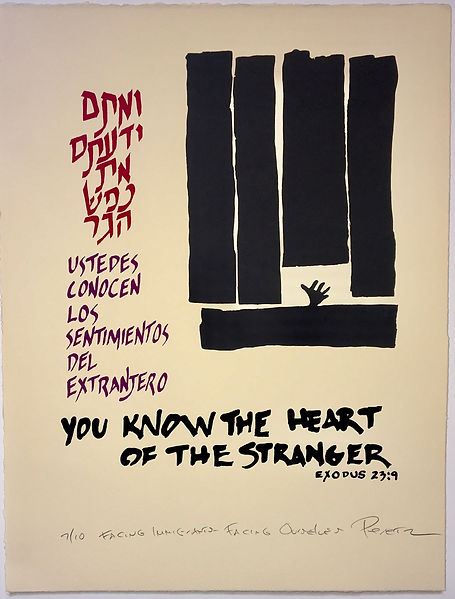 ואתם
ידעתם
את
נפש
הגר
USTEDES
CONOCEN
LOS
SENTIMIENTOS
DEL
EXTRANJERO
YOU KNOW THE HEART
OF THE STRANGER
EXODUS 23:9
7/10 FACING IMMIGRANTS FACING OURSELVES